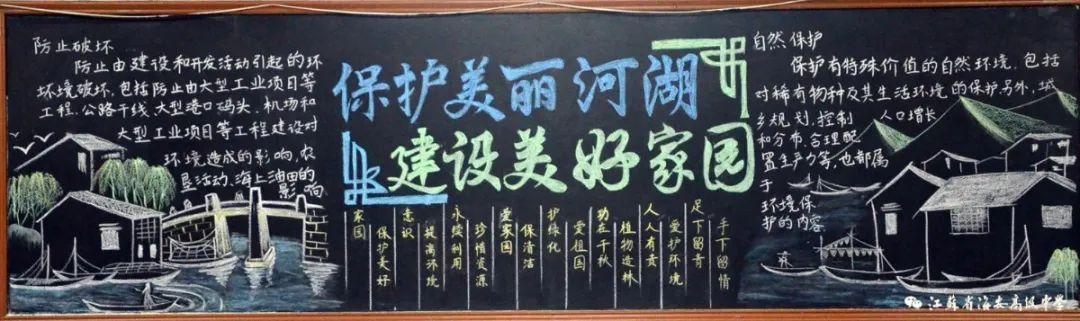 防止破坏
防止由建设和开发活动引起的环
环境破坏,包括防止由大型工业项目等
工程,公路干线,大型港口码头,机场和
大型工业项目等工程建设对
环境造成的影响,农
垦活动,海上油田的
影响
保护美丽河湖
建设美好家园
手下留情
足下留青
爱护环境
人人有责
植物造林
功在千秋
爱祖国
护绿化
保清洁
爱家园
珍惜资源
永续利用
提高环境
意识
保护美好
家园
自然保护
保护有特殊价值的自然环境,包括
对稀有物种及其生活环境的保护另外,城
乡规划,控制人口增长
和分布,合理配
置生产力等,也都属
于
环境保
护的内容
江苏省海安高级中学